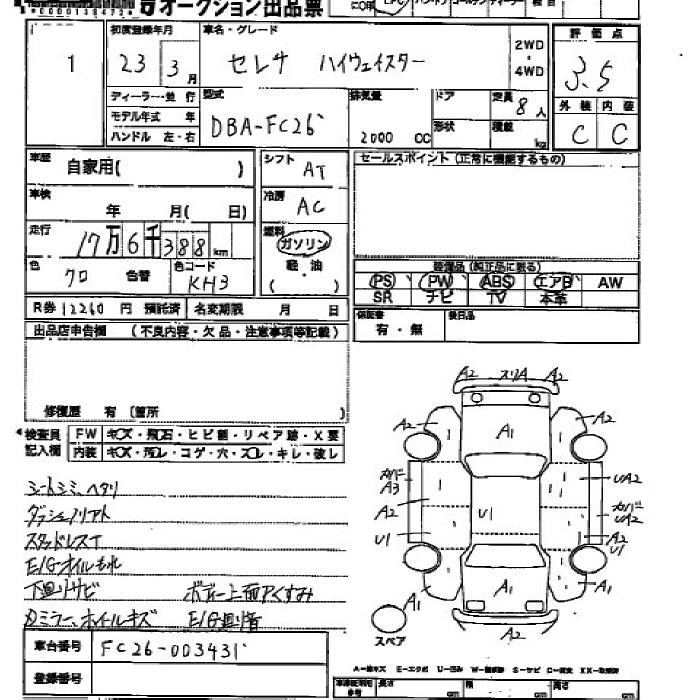 オークション出品票
初度登録年月 車名・グレード
1 23 3月 セレナ ハイウェイスター 2WD・4WD
評価点
3.5
外装 内装
C C
ディーラー・並行
モデル年式 年
ハンドル 左・右
型式 DBA-FC26
排気量 2000 CC
ドア
形状
定員 8人
積載 kg
車歴 自家用( )
車検 年 月( 日)
走行 17万6千388km
色 クロ 色替 色コード KH3
シフト AT
冷房 AC
燃料 ガソリン
軽油
( )
セールスポイント(正常に機能するもの)
装備品(純正品に限る)
PS PW ABS エアB AW
SR ナビ TV 本革
保証書 有・無 後日品
R券 12260 円 預託済 名変期限 月 日
出品店申告欄 (不良内容・欠品・注意事項等記載)
修復歴 有 [箇所 ]
検査員記入欄
FW キズ・飛石・ヒビ割・リペア跡・X要
内装 キズ・汚レ・コゲ・穴・スレ・キレ・破レ
シートシミ、ヘタリ
ダッシュノリアト
スタッドレスT
E/Gオイルもれ
下回りサビ ボディー上面アくすみ
ミラー、ホイルキズ E/G異音
A2 スリA A2
A2 A1 A2
A3 A2 U1 U1
UA2 UA2 A2 U1
A1 A1 A1
A2
スペア
車台番号 FC26-003431
登録番号
A-線キズ E-エクボ U-凹み W-補修跡 S-サビ C-腐食 XX-取替済
長さ cm 幅 cm 高さ cm